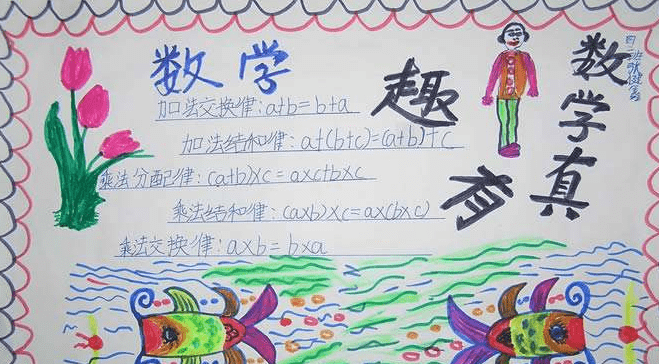 数学
加法交换律:a+b=b+a
加法结和律:a+(b+c)=(a+b)+c
乘法分配律:(a+b)×c=a×c+b×c
乘法结和律:(a×b)×c=a×(b×c)
乘法交换律:a×b=b×a
数学真
有
趣
四二班